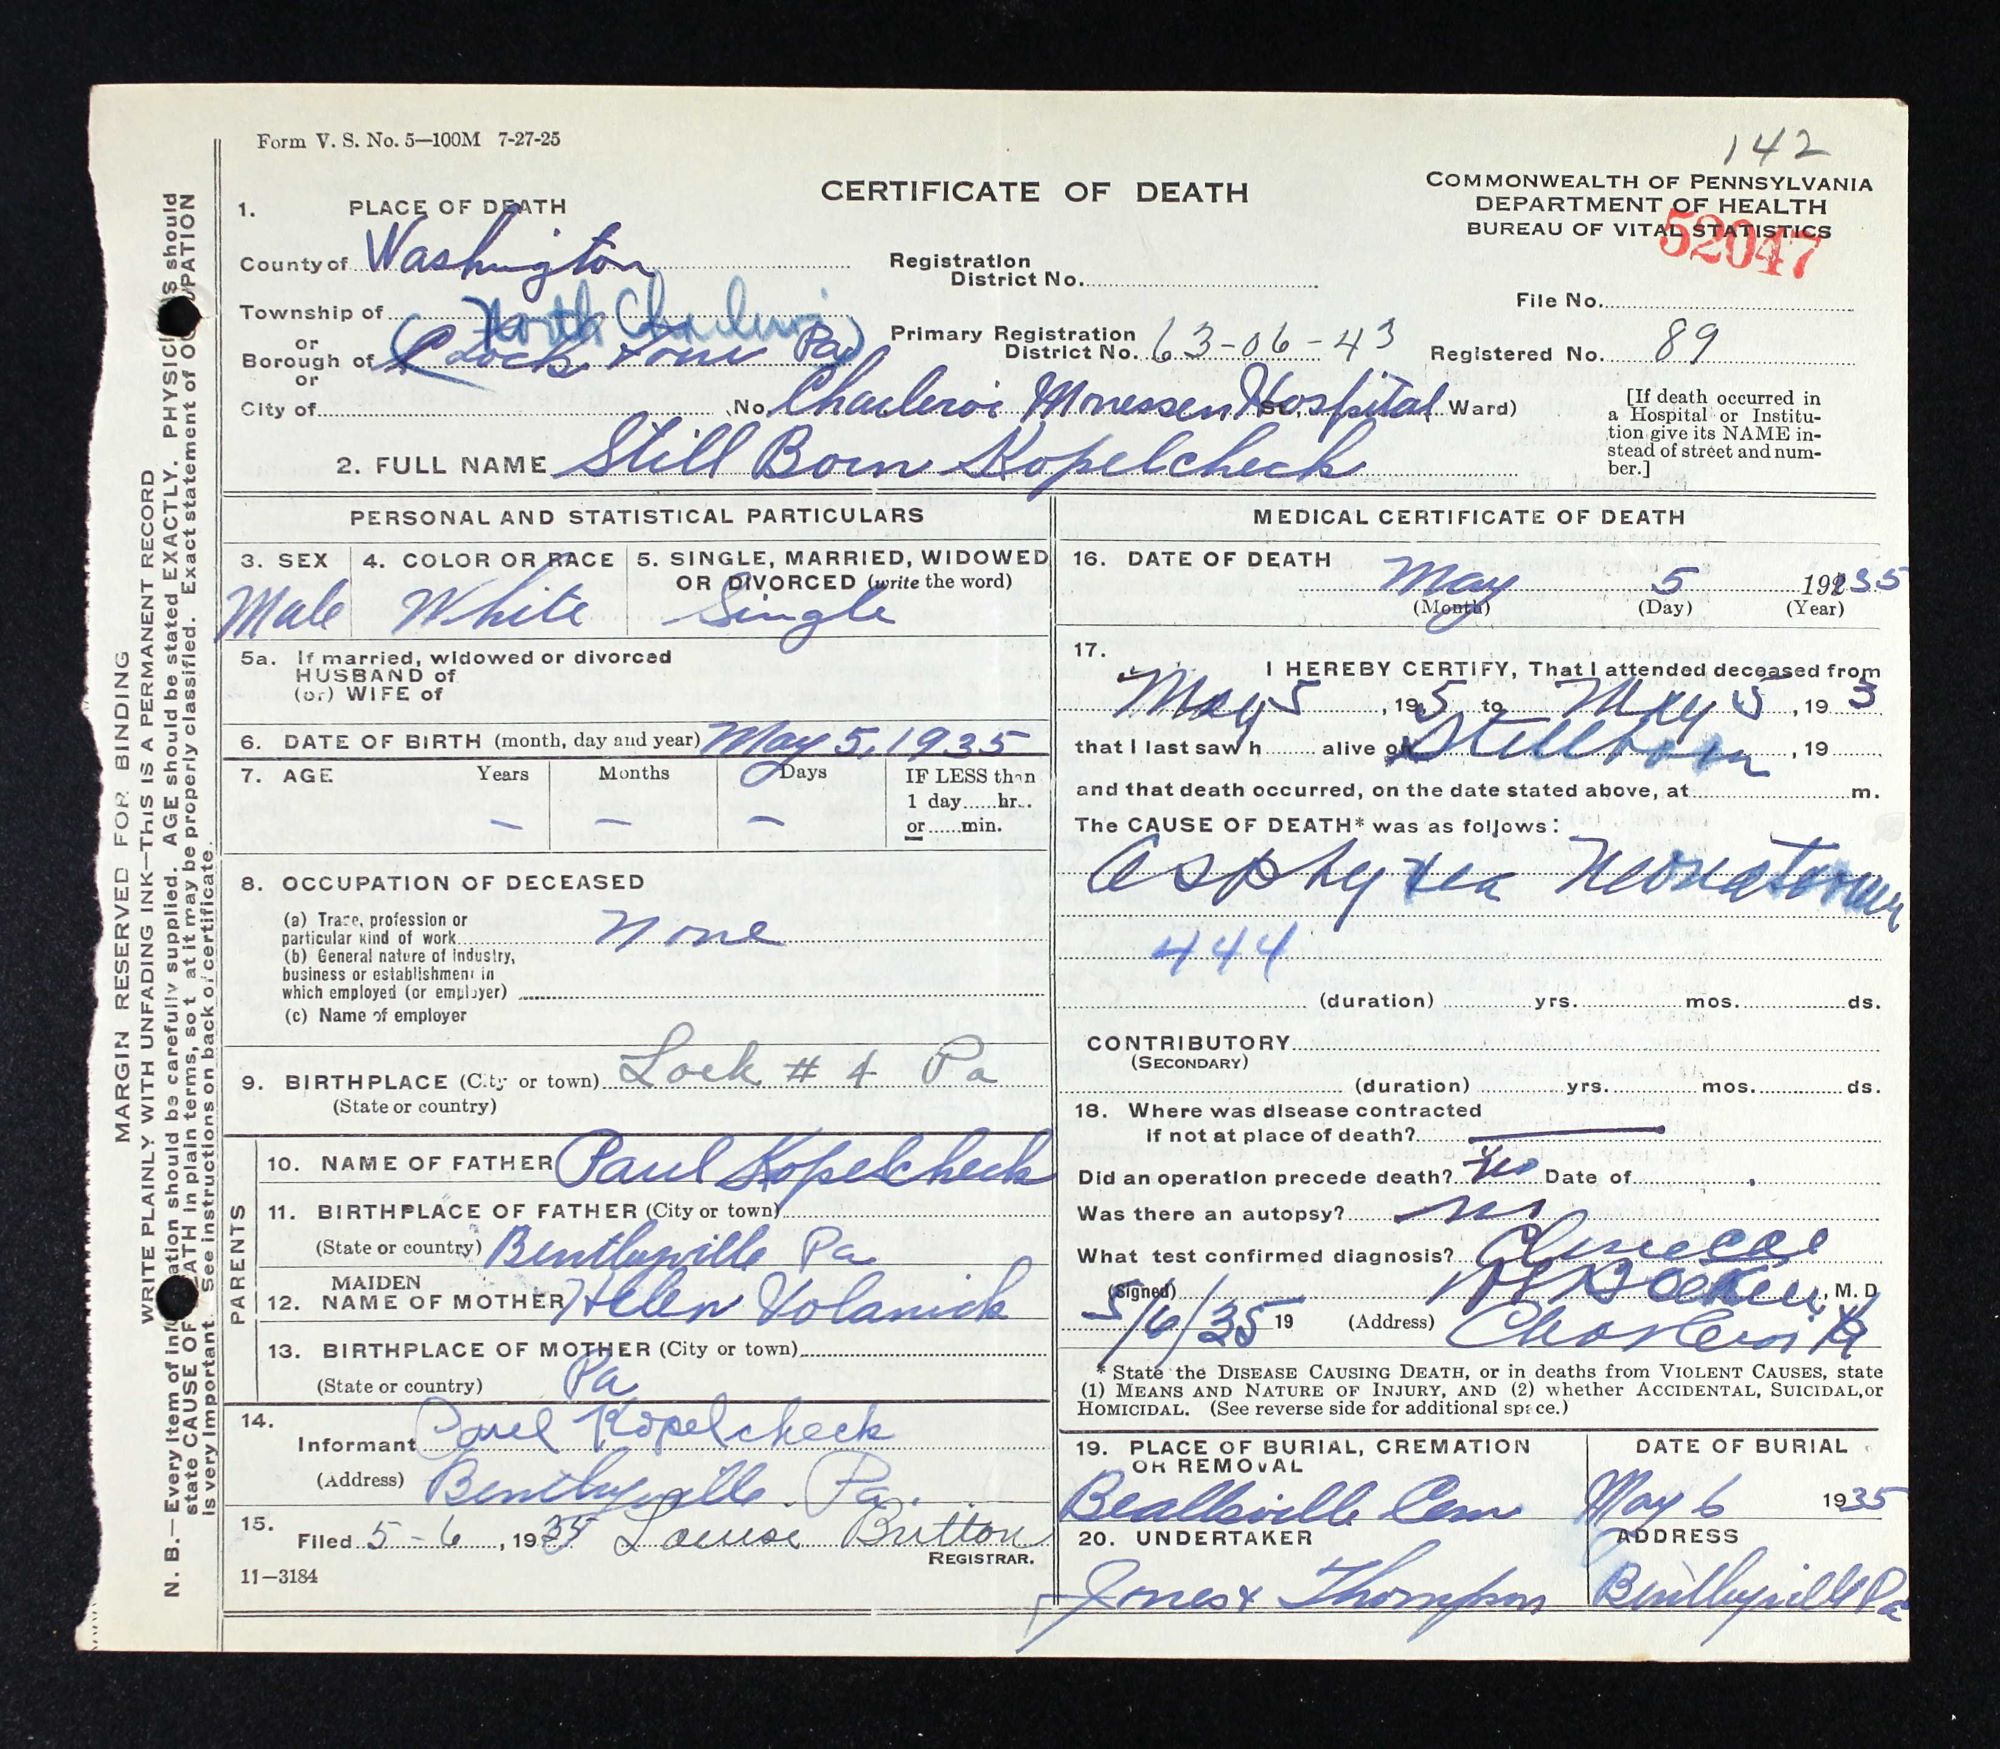 Form V. S. No. 5—100M 7-27-25
142
CERTIFICATE OF DEATH
COMMONWEALTH OF PENNSYLVANIA
DEPARTMENT OF HEALTH
BUREAU OF VITAL STATISTICS
52047
1. PLACE OF DEATH
County of Washington
Registration
District No.
File No.
Township of North Charleroi
or
Borough of Lock Four Pa
Primary Registration
District No. 63-06-43
Registered No. 89
or
City of No. Charleroi Monessen Hospital St., Ward)
[If death occurred in
a Hospital or Institu-
tion give its NAME in-
stead of street and num-
ber.]
2. FULL NAME Still Born Kopelcheck
PERSONAL AND STATISTICAL PARTICULARS
3. SEX
Male
4. COLOR OR RACE
White
5. SINGLE, MARRIED, WIDOWED
OR DIVORCED (write the word)
Single
5a. If married, widowed or divorced
HUSBAND of
(or) WIFE of
6. DATE OF BIRTH (month, day and year) May 5, 1935
7. AGE Years Months Days IF LESS than
1 day......hr..
or......min.
– – –
8. OCCUPATION OF DECEASED
(a) Trade, profession or
particular kind of work None
(b) General nature of Industry,
business or establishment in
which employed (or employer)
(c) Name of employer
9. BIRTHPLACE (City or town) Lock # 4 Pa
(State or country)
PARENTS
10. NAME OF FATHER Paul Kopelcheck
11. BIRTHPLACE OF FATHER (City or town)
(State or country) Bentleyville Pa
12. MAIDEN
NAME OF MOTHER Helen Volanick
13. BIRTHPLACE OF MOTHER (City or town)
(State or country) Pa
14.
Informant Paul Kopelcheck
(Address) Bentleyville Pa.
15.
Filed 5-6, 1935 Louise Britton
REGISTRAR.
11—3184
MEDICAL CERTIFICATE OF DEATH
16. DATE OF DEATH
May 5 1935
(Month) (Day) (Year)
17.
I HEREBY CERTIFY, That I attended deceased from
May 5, 195 to May 5, 193
that I last saw h alive on Stillborn, 19
and that death occurred, on the date stated above, at m.
The CAUSE OF DEATH* was as follows:
Asphyxia Neonatorum
444
(duration) yrs. mos. ds.
CONTRIBUTORY
(SECONDARY)
(duration) yrs. mos. ds.
18. Where was disease contracted
if not at place of death?
Did an operation precede death? Date of
Was there an autopsy? no
What test confirmed diagnosis? Clinical
(Signed) , M. D
5/6/35 19 (Address) Charleroi Pa
* State the DISEASE CAUSING DEATH, or in deaths from VIOLENT CAUSES, state
(1) MEANS AND NATURE OF INJURY, AND (2) whether ACCIDENTAL, SUICIDAL, or
HOMICIDAL. (See reverse side for additional space.)
19. PLACE OF BURIAL, CREMATION
OR REMOVAL
Beallsville Cem
DATE OF BURIAL
May 6 1935
20. UNDERTAKER
Jones & Thompson
ADDRESS
Bentleyville Pa
MARGIN RESERVED FOR BINDING
WRITE PLAINLY WITH UNFADING INK—THIS IS A PERMANENT RECORD
N. B.—Every item of information should be carefully supplied. AGE should be stated EXACTLY. PHYSICIANS should
state CAUSE OF DEATH in plain terms, so that it may be properly classified. Exact statement of OCCUPATION
is very important. See instructions on back of certificate.